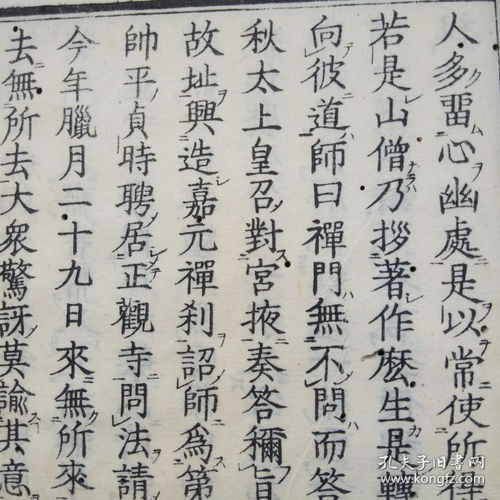 人多畱心幽處是以常使所
若是山僧乃拶著作麽生毋轉
向彼道師曰禪門無不問而答
秋太上皇召對宮掖奏答稱旨
故址興造嘉元禪刹詔師為第
帥平貞時聘居正觀寺問法請
今年臘月二十九日來無所來
去無所去大衆驚訝莫諭其意
孔夫子旧书网
www.kongfz.com